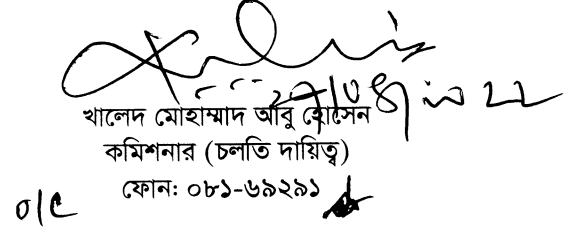 খালেদ মোহাম্মাদ আবু হোসেন
কমিশনার (চলতি দায়িত্ব)
ফোন: ০৮১-৬৯২৯১
o/c